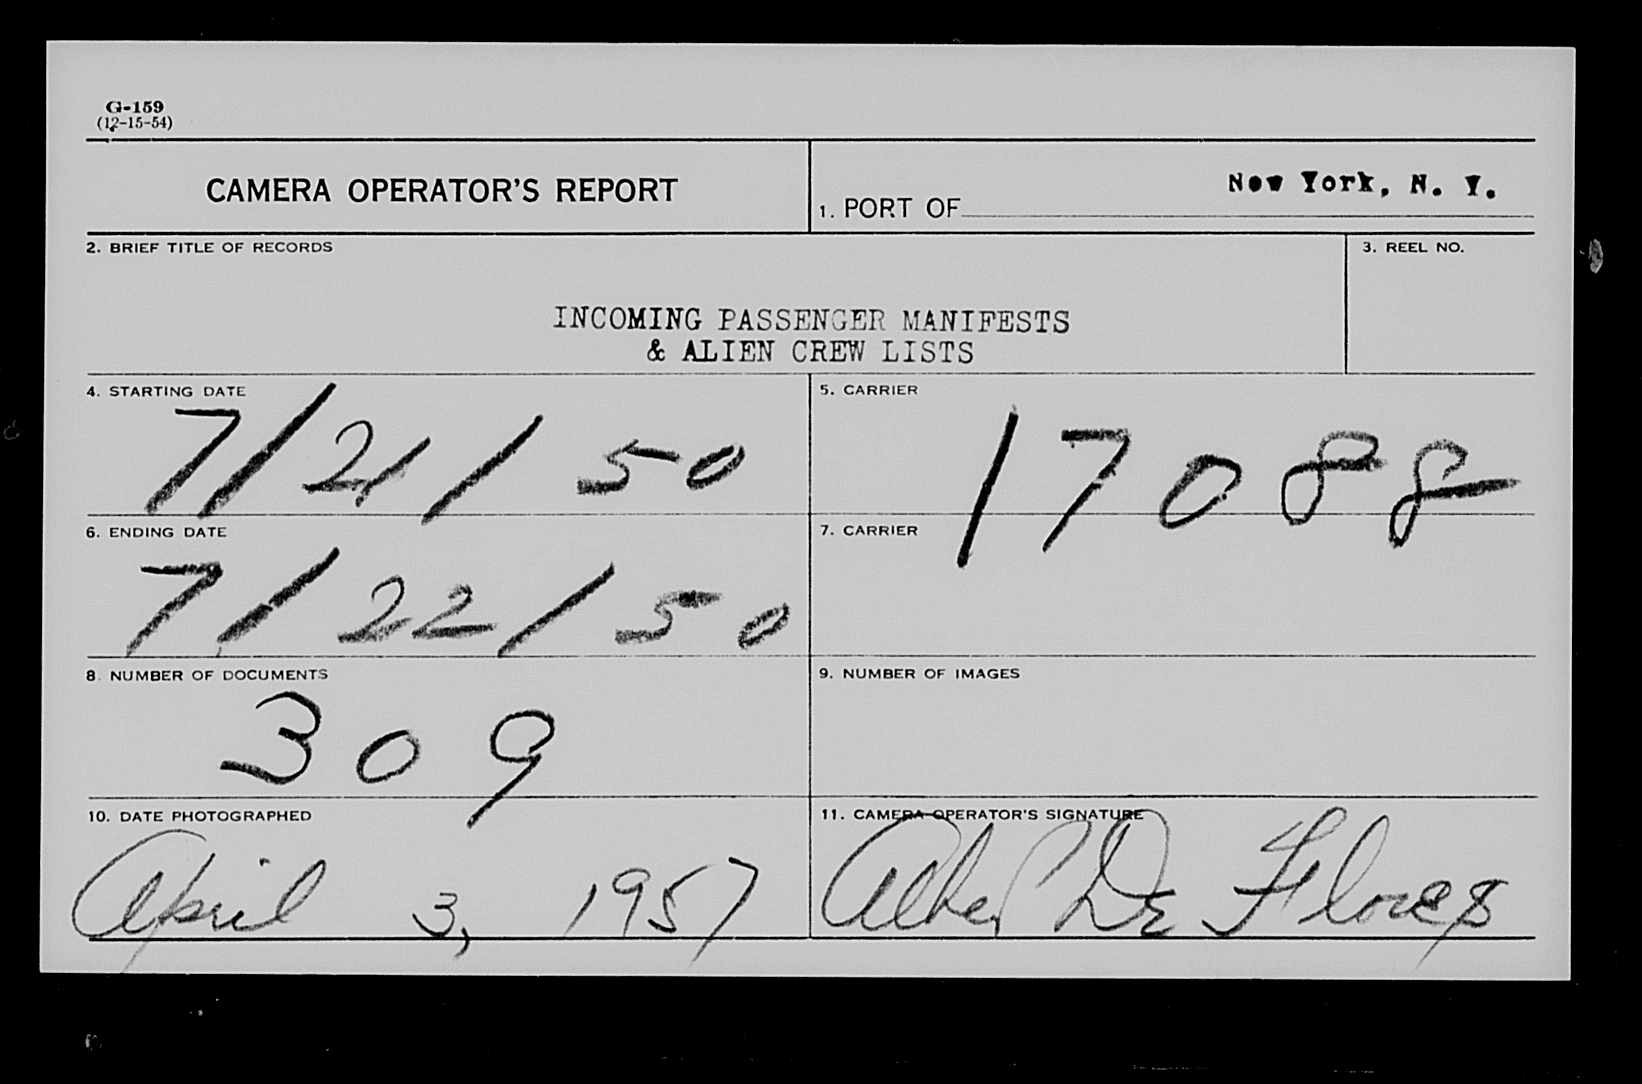 G-159
(12-15-54)
CAMERA OPERATOR'S REPORT
1. PORT OF New York, N. Y.
2. BRIEF TITLE OF RECORDS
3. REEL NO.
INCOMING PASSENGER MANIFESTS
& ALIEN CREW LISTS
4. STARTING DATE
7/21/50
5. CARRIER
17088
6. ENDING DATE
7/22/50
7. CARRIER
8. NUMBER OF DOCUMENTS
309
9. NUMBER OF IMAGES
10. DATE PHOTOGRAPHED
April 3, 1957
11. CAMERA OPERATOR'S SIGNATURE
De Flores